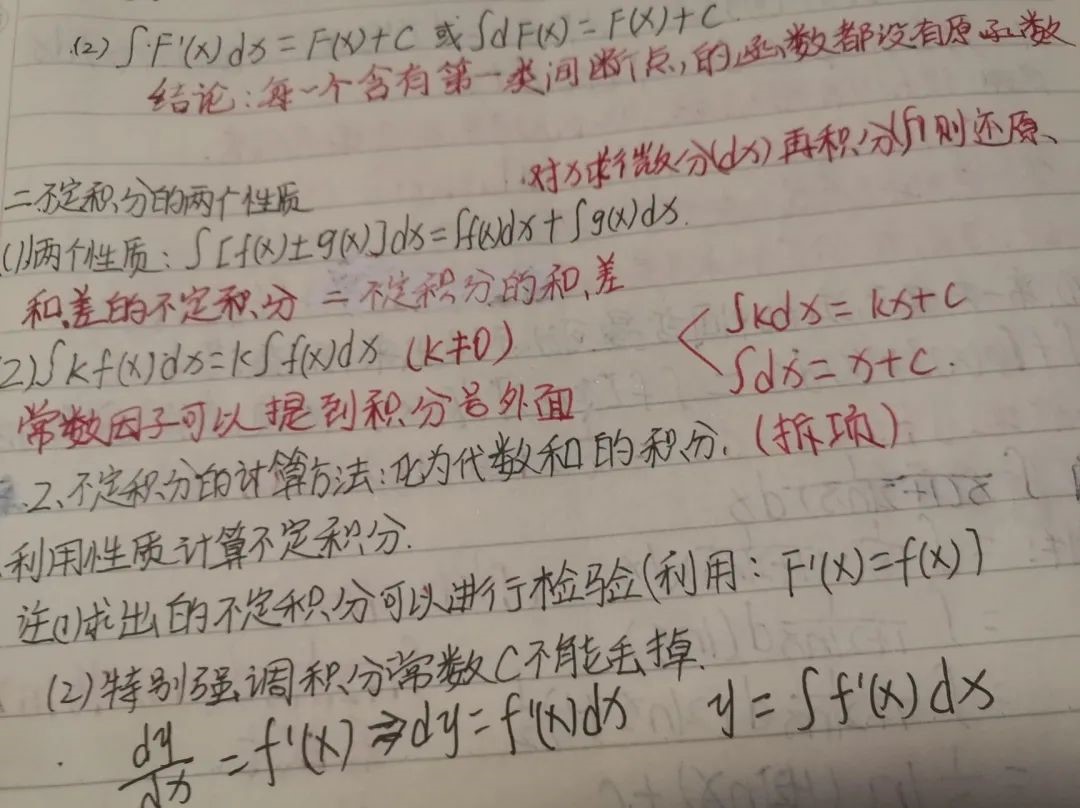 (2) ∫F'(x)dx = F(x)+C 或 ∫dF(x) = F(x)+C
结论:每一个含有第一类间断点,的函数都没有原函数
对x求微分(dx)再积分(∫)则还原、
二.不定积分的两个性质
(1)两个性质:∫[f(x)±g(x)]dx=∫f(x)dx+∫g(x)dx.
和、差的不定积分 = 不定积分的和、差
(2)∫kf(x)dx=k∫f(x)dx (k≠0)
∫kdx = kx+C
∫dx = x+C.
常数因子可以提到积分号外面
2、不定积分的计算方法:化为代数和的积分.(拆项)
利用性质计算不定积分.
注(1)求出的不定积分可以进行检验(利用:F'(x)=f(x)]
(2)特别强调积分常数C不能丢掉.
dy/dx = f'(x) ⇒ dy = f'(x)dx y = ∫f'(x)dx